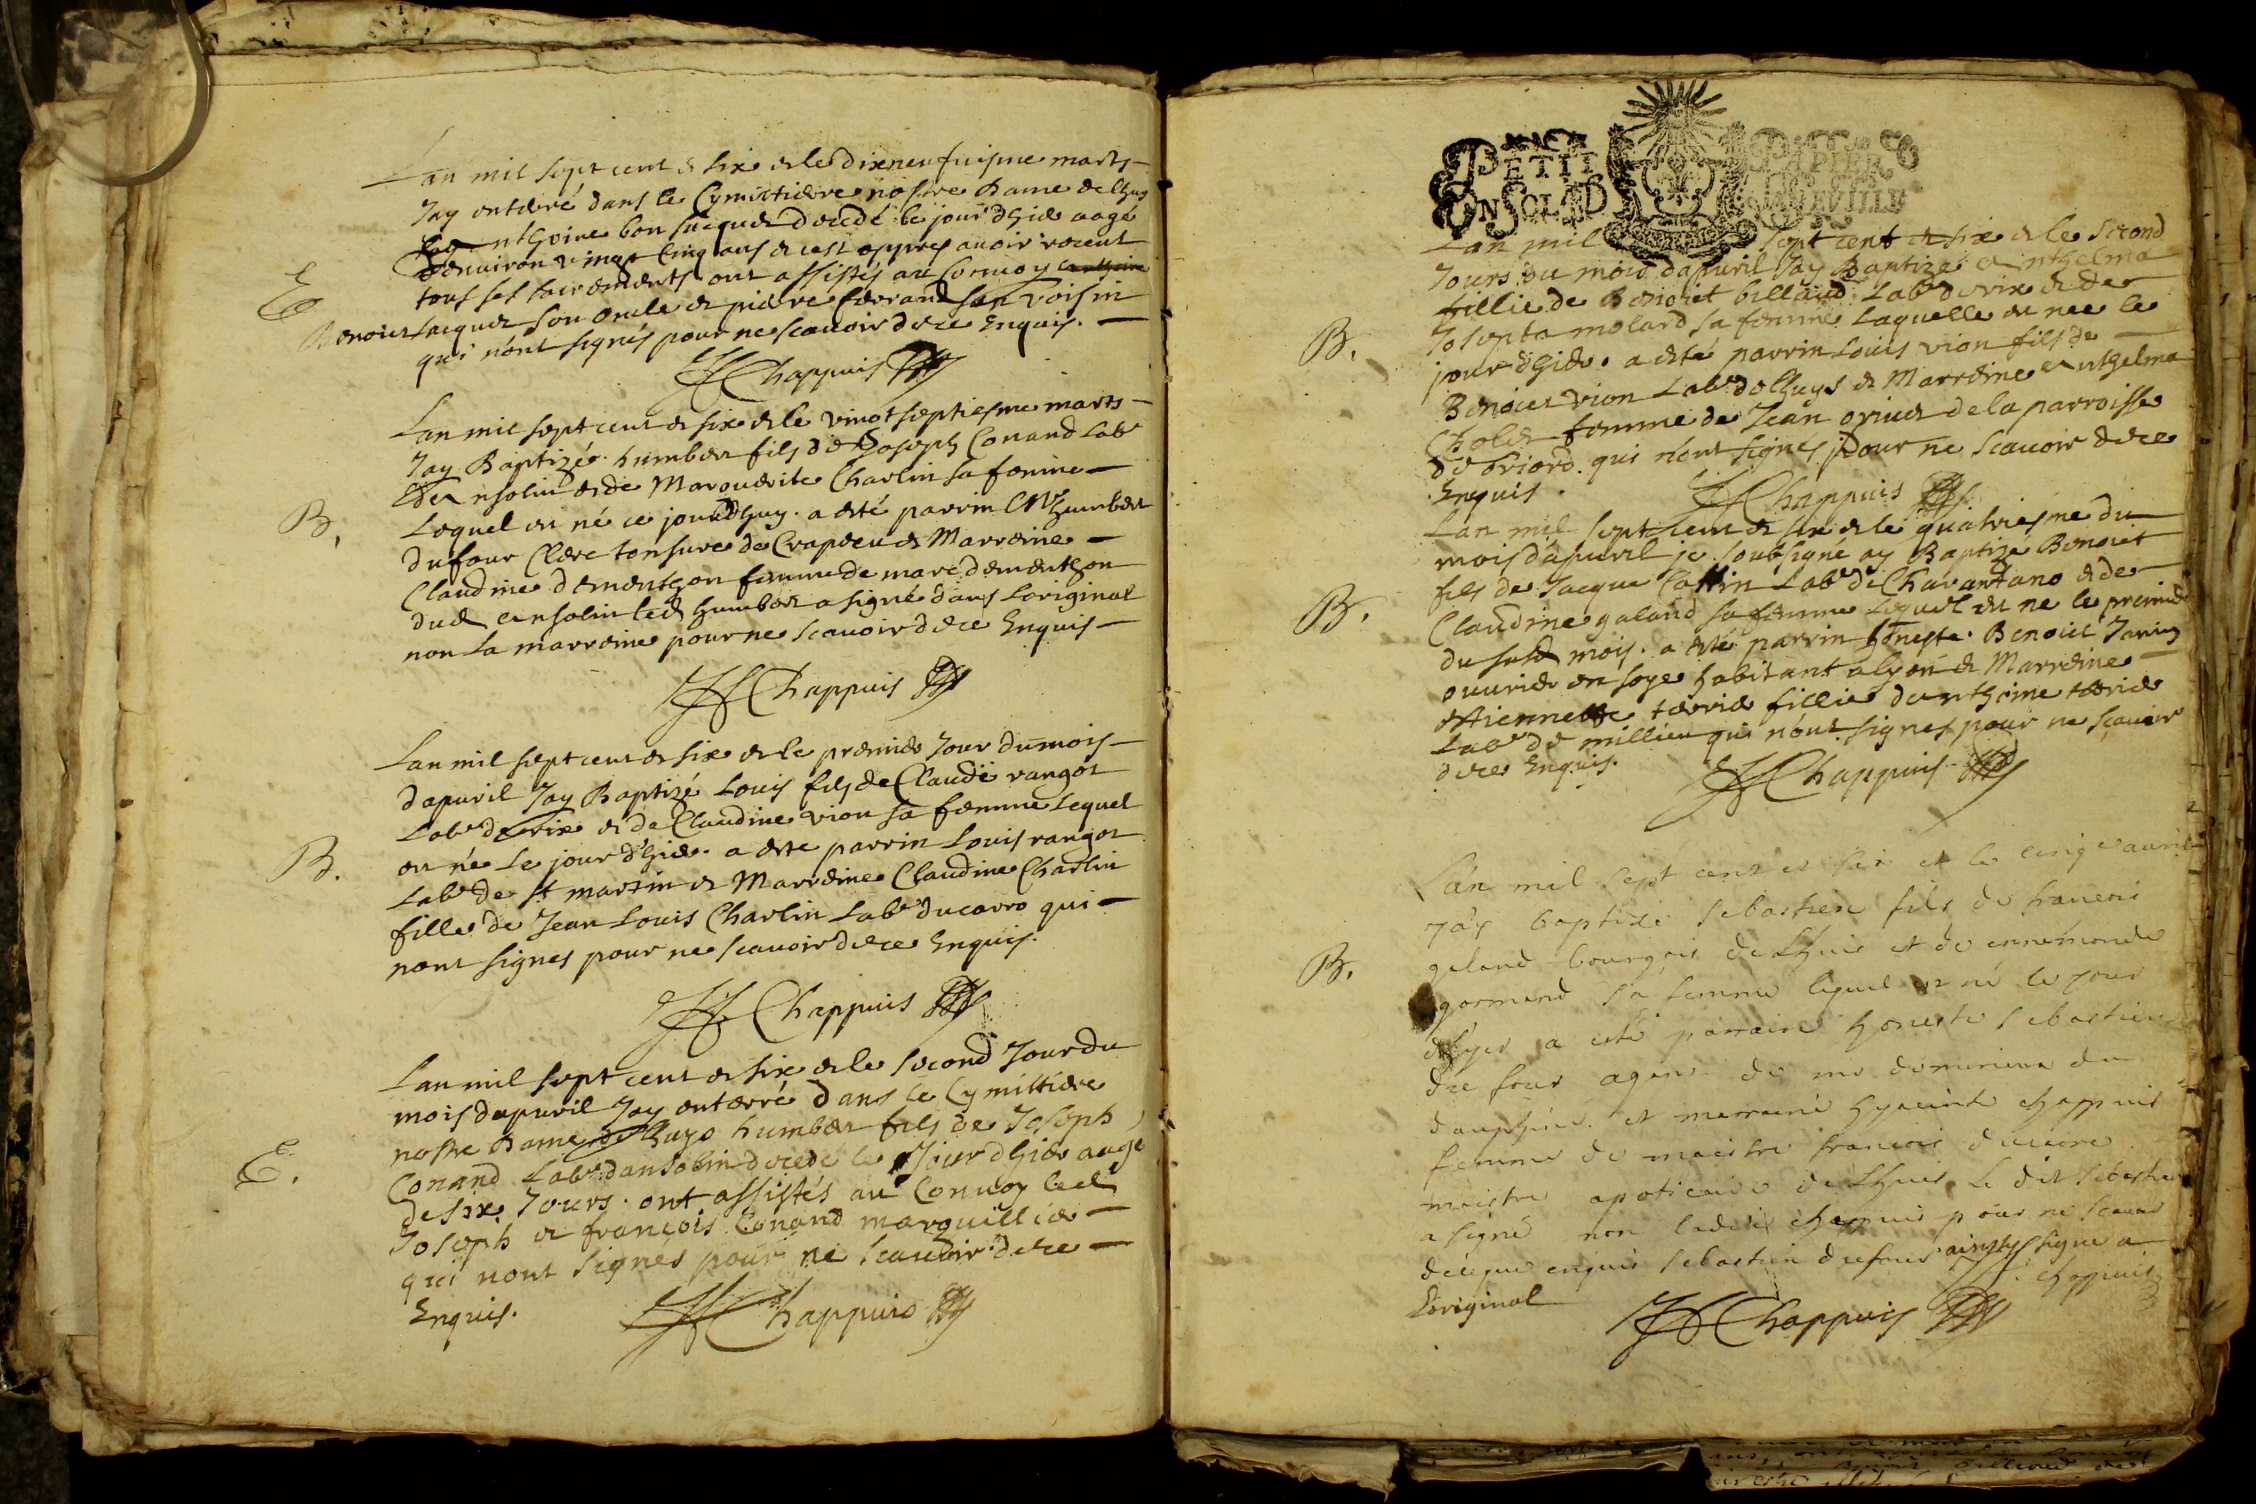 Lan mil sept cent & six & le dixneufuiesme marts
Jay enterré dans le Cymistiere nostre Dame de lhuys
Anthoine bon Jacquer decedé le jour dhier aagé
denuiron vingt cinq ans & cest appres auoir receut
tous ses sacrements ont assistés au Conuoy
E
Benoict Jacquer son oncle & pierre ferrand son voisin
qui nont signés pour ne scauoir de ce Enquis.
Chappuis
Lan mil sept cent & six & le vingt septiesme marts
Jay Baptizé humbert fils de Joseph Conand Labr
d'ansolin & de Marguerite Charlin sa femme
B.
Lequel est né ce jourdhuy. a esté parrin Mr humbert
dufour Clerc tonsure de Crapieu & Marreine
Claudine dementhon femme de marc dementhon
dud ansolin led humbert a signé dans Loriginal
non La marreine pour ne scauoir de ce Enquis
Chappuis
Lan mil sept cent & six & le premier Jour du mois
dapuril Jay Baptizé Louis fils de Claude rangot
Labr de crix & de Claudine vion sa femme Lequel
est né Le jour dhier. a esté parrin Louis rangot
B.
Labr de st martin & Marreine Claudine Charlin
fille de Jean Louis Charlin Labr ducarro qui
nont signes pour ne scauoir de ce Enquis.
Chappuis
Lan mil sept cent & six & le second Jour du
mois dapuril Jay enterré dans le Cymittiere
nostre Dame de lhuys humbert fils de Joseph
E.
Conand Labr dansolin decedé le Jour dhier aagé
de six Jours. ont assistés au Conuoy led
Joseph & françois Conand marguillier
qui nont signés pour ne scauoir de ce
Enquis.
Chappuis
PETIT PAPIER
Lan mil sept cent & six & le second
Jours du mois dapuril Jay Baptizé anthelma
fillie de Benoict billaud Labr de crix & de
B.
Josepta molard sa femme Laquelle est nee le
jour dhier. a esté parrin Louis vion fils de
Benoict vion Labr de lhuys & Marreine anthelma
Cholet femme de Jean de la parroisse
de briord. qui nont signés pour ne scauoir de ce
Enquis.
Chappuis
Lan mil sept cent & six & le quatriesme du
mois dapuril je soubsigné ay Baptizé Benoict
B.
fils de Jacque Labr de & de
Claudine galand sa femme Lequel est ne le premier
du susd mois. a esté parrin honeste. Benoict
ouurier en soye habitant a lyon & Marreine
estiennette fillie danthoine
Labr de millieu qui nont signes pour ne scauoir
de ce Enquis.
Chappuis
Lan mil sept cent et six et le cinq auril
Jay baptizé sebastien fils de francois
galand bourgois de Lhuis et de ennemonde
B.
gormand sa femme lequel est né le jour
dhyer a esté parrain honeste sebastien
du four agent de
dauphiné. et marraine hyacinte chappuis
femme de maistre francois
maistre apoticaire de Lhuis Le dit sebastien
a signé non ladite chappuis pour ne scauoir
de ce que enquis sebastien dufour ainsy signe a
chappuis
Loriginal
Chappuis